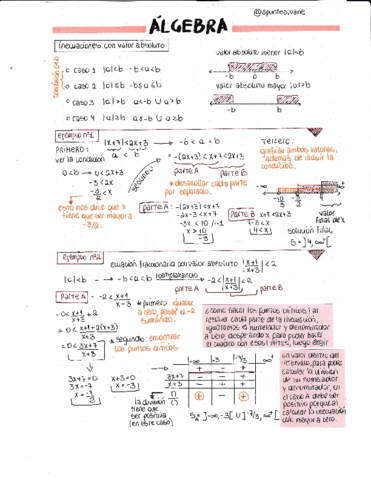 @apuntes.vane
ÁLGEBRA
Inecuaciones con valor absoluto
Condición: 0<b
valor absoluto menor |a|<b
caso 1 |a|<b -b<a<b
-b 0 b
caso 2 |a|≤b -b≤a≤b
valor absoluto mayor |a|>b
caso 3 |a|>b a<-b U a>b
-b b
caso 4
Ejemplo nº1
|x+7|<2x+3
-b<a<b
PRIMERO:
ver la condición
a < b
0<b → 0<2x+3
-3<2x
-3/2 < x
esto nos dice que x
tiene que ser mayor a
-3/2.
SEGUNDO:
-(2x+3)<x+7<2x+3
PARTE A PARTE B
* desarrollar cada parte
por separado.
PARTE A: -(2x+3)<x+7
-2x-3<x+7
-3x<10
x>10/-3
PARTE B x+7<2x+3
7-3<x
4<x
Tercero:
graficar ambos valores,
además de incluir la
condición.
-10/3 -3/2 4
valor
final de x
solución final
S = ]4,∞[
Ejemplo nº2
ecuación fraccionaria con valor absoluto |x+1/x+3|<2
|a|<b → -b<a<b (reemplazamos) -2<|x+1/x+3|<2
PARTE A PARTE B
PARTE A -2<x+1/x+3
* primero igualar
a cero, pasar el -2
sumando.
0<x+1/x+3+2
0<x+1+2(x+3)/x+3
0<3x+7/x+3
* segundo: encontrar
los puntos críticos
3x+7=0
3x=-7
x=-7/3
x+3=0
x=-3
-∞ -3 -7/3 ∞+
3x+7 - - +
x+3 - + +
la división
tiene que
ser positiva
(en este caso)
¿Cómo sacar los puntos críticos? Al
resolver cada parte de la inecuación,
igualamos el numerador y denominador
a cero, despejando x para poder hacer
el cuadro con esos límites, luego elegir
un valor dentro del
intervalo, para poder
calcular la división
de un numerador
y denominador, en
el caso A debe ser
positivo porque al
calcular la inecuación
dio mayor a cero.
S_A ]-∞,-3[ U ]-7/3,∞[